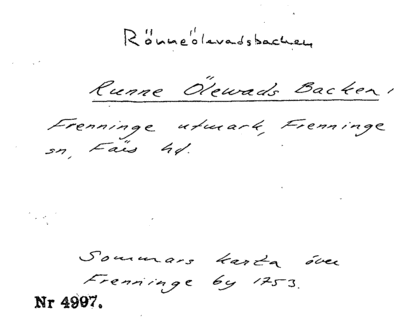 Rönneölevadsbacken
Runne Ölewads Backen,
Frenninge utmark, Frenninge
sn, Färs hd.
Sommars karta över
Frenninge by 1753.
Nr 4997.